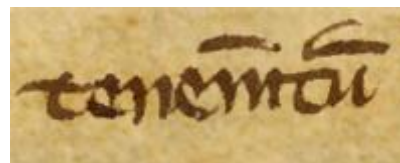 tenem̅tu̅